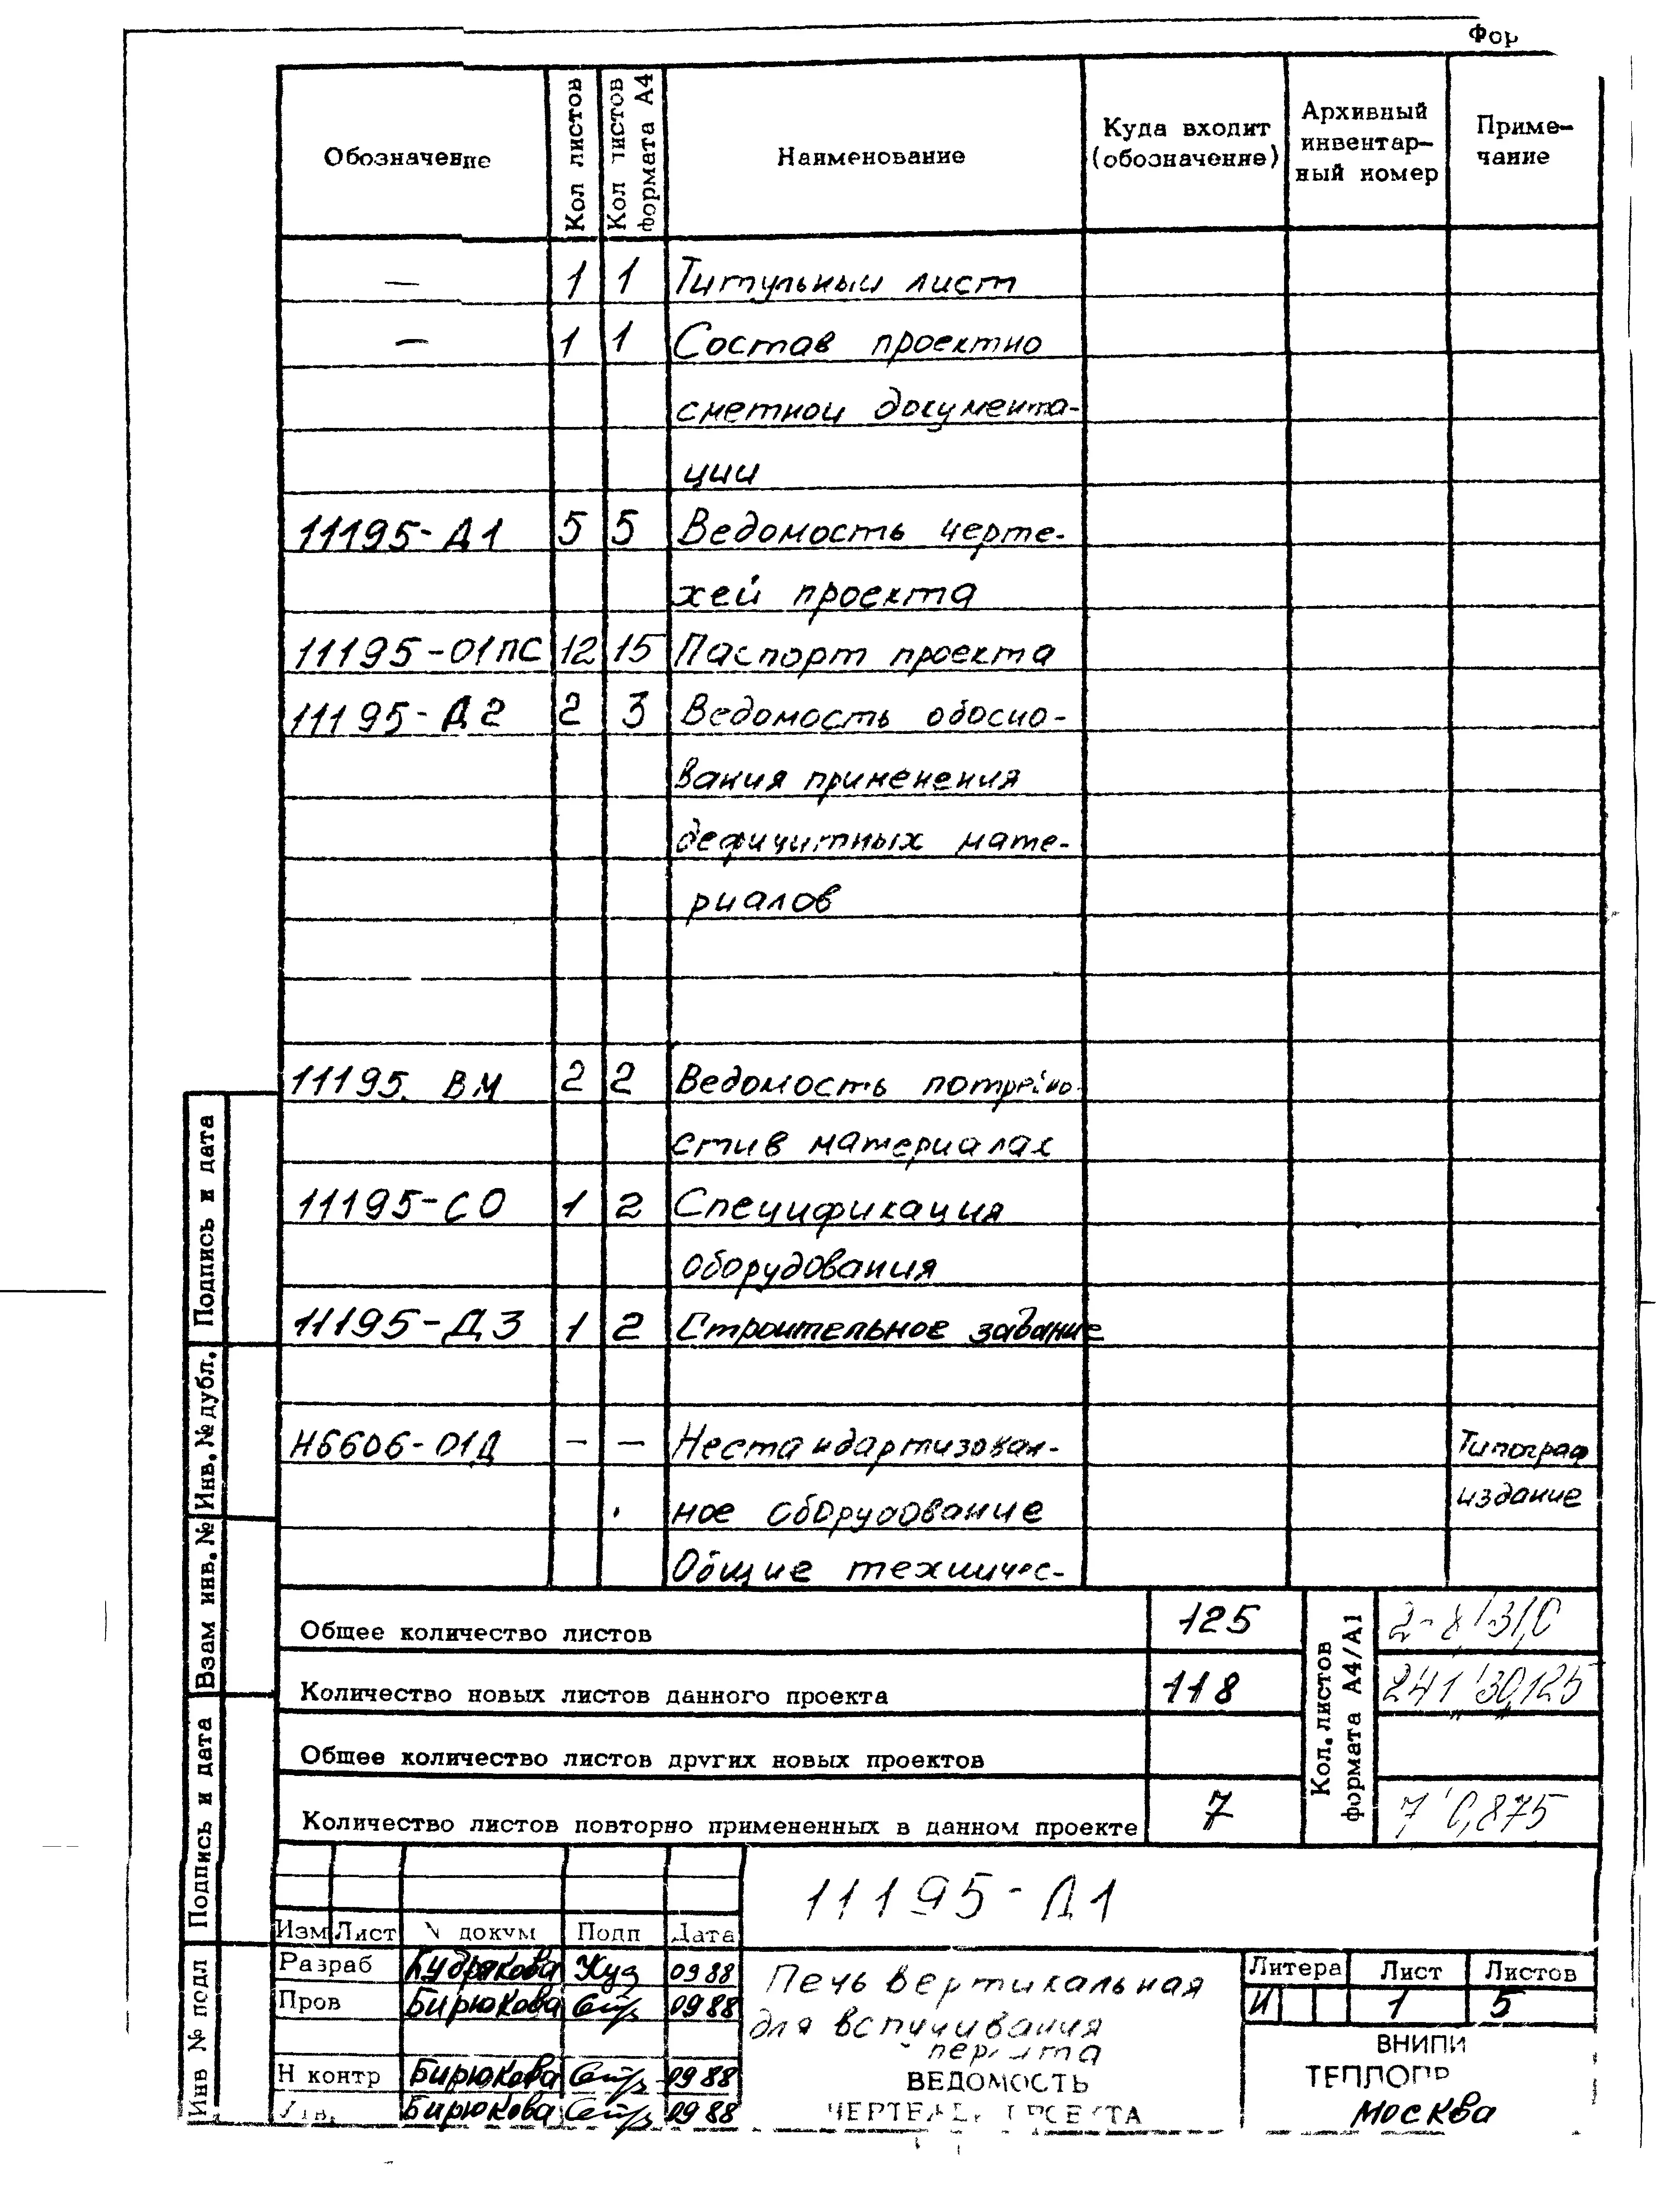 Фор
Обозначение
Кол листов
Кол листов формата А4
Наименование
Куда входит (обозначение)
Архивный инвентар- ный номер
Приме- чание
— 1 1 Титульный лист
— 1 1 Состав проектно
сметной документа-
ции
11195-Д1 5 5 Ведомость черте-
жей проекта
11195-01ПС 12 15 Паспорт проекта
11195-Д2 2 3 Ведомость обосно-
вания применения
дефицитных мате-
риалов
11195. ВМ 2 2 Ведомость потребно-
сти в материалах
11195-СО 1 2 Спецификация
оборудования
11195-Д3 1 2 Строительное задание
Н6606-01Д — — Нестандартизован- Типограф
ное оборудование издание
Общие техничес-
Общее количество листов 125
Количество новых листов данного проекта 118 241 30,125
Общее количество листов других новых проектов
Количество листов повторно примененных в данном проекте 7 7 0,875
Кол. листов формата А4/А1
Подпись и дата
Инв. № дубл.
Взам инв. №
Подпись и дата
Инв № подл
11195-Д1
Изм Лист № докум Подп Дата
Разраб Кудрякова 09 88
Пров Бирюкова 09 88
Н контр Бирюкова 09 88
Утв. Бирюкова 09 88
Печь вертикальная
для вспучивания
перлита
ВЕДОМОСТЬ
ЧЕРТЕЖЕЙ ПРОЕКТА
Литера Лист Листов
И 1 5
ВНИПИ
ТЕПЛОПР
Москва